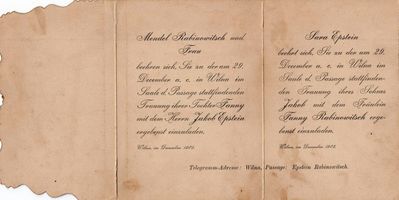 Mendel Rabinowitsch und
Frau
beehren sich, Sie zu der am 29.
December a. c. in Wilna im
Saale d. Passage stattfindenden
Trauung ihrer Tochter Fanny
mit dem Herrn Jakob Epstein
ergebenst einzuladen.
Wilna, im December 1902.
Sara Epstein
beehrt sich, Sie zu der am 29.
December a. c. in Wilna im
Saale d. Passage stattfinden-
den Trauung ihres Sohnes
Jakob mit dem Fräulein
Fanny Rabinowitsch erge-
benst einzuladen.
Wilna, im December 1902.
Telegramm-Adresse: Wilna, Passage: Epstein Rabinowitsch.